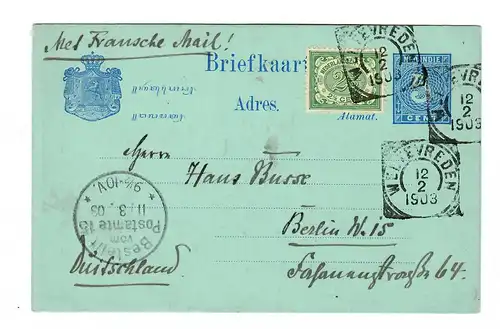 Met Fransche Mail!
Briefkaart
Adres.
Alamat.
CENT
WELTEVREDEN
12
2
1903
12
2
1903
WELTEVREDEN
12
2
1903
Herrn
Hans Busse
Berlin W. 15
Fasanenstrasse 64.
Duitschland
Bestellt
vom
Postamte 15
11/3.03
9¼-10V.